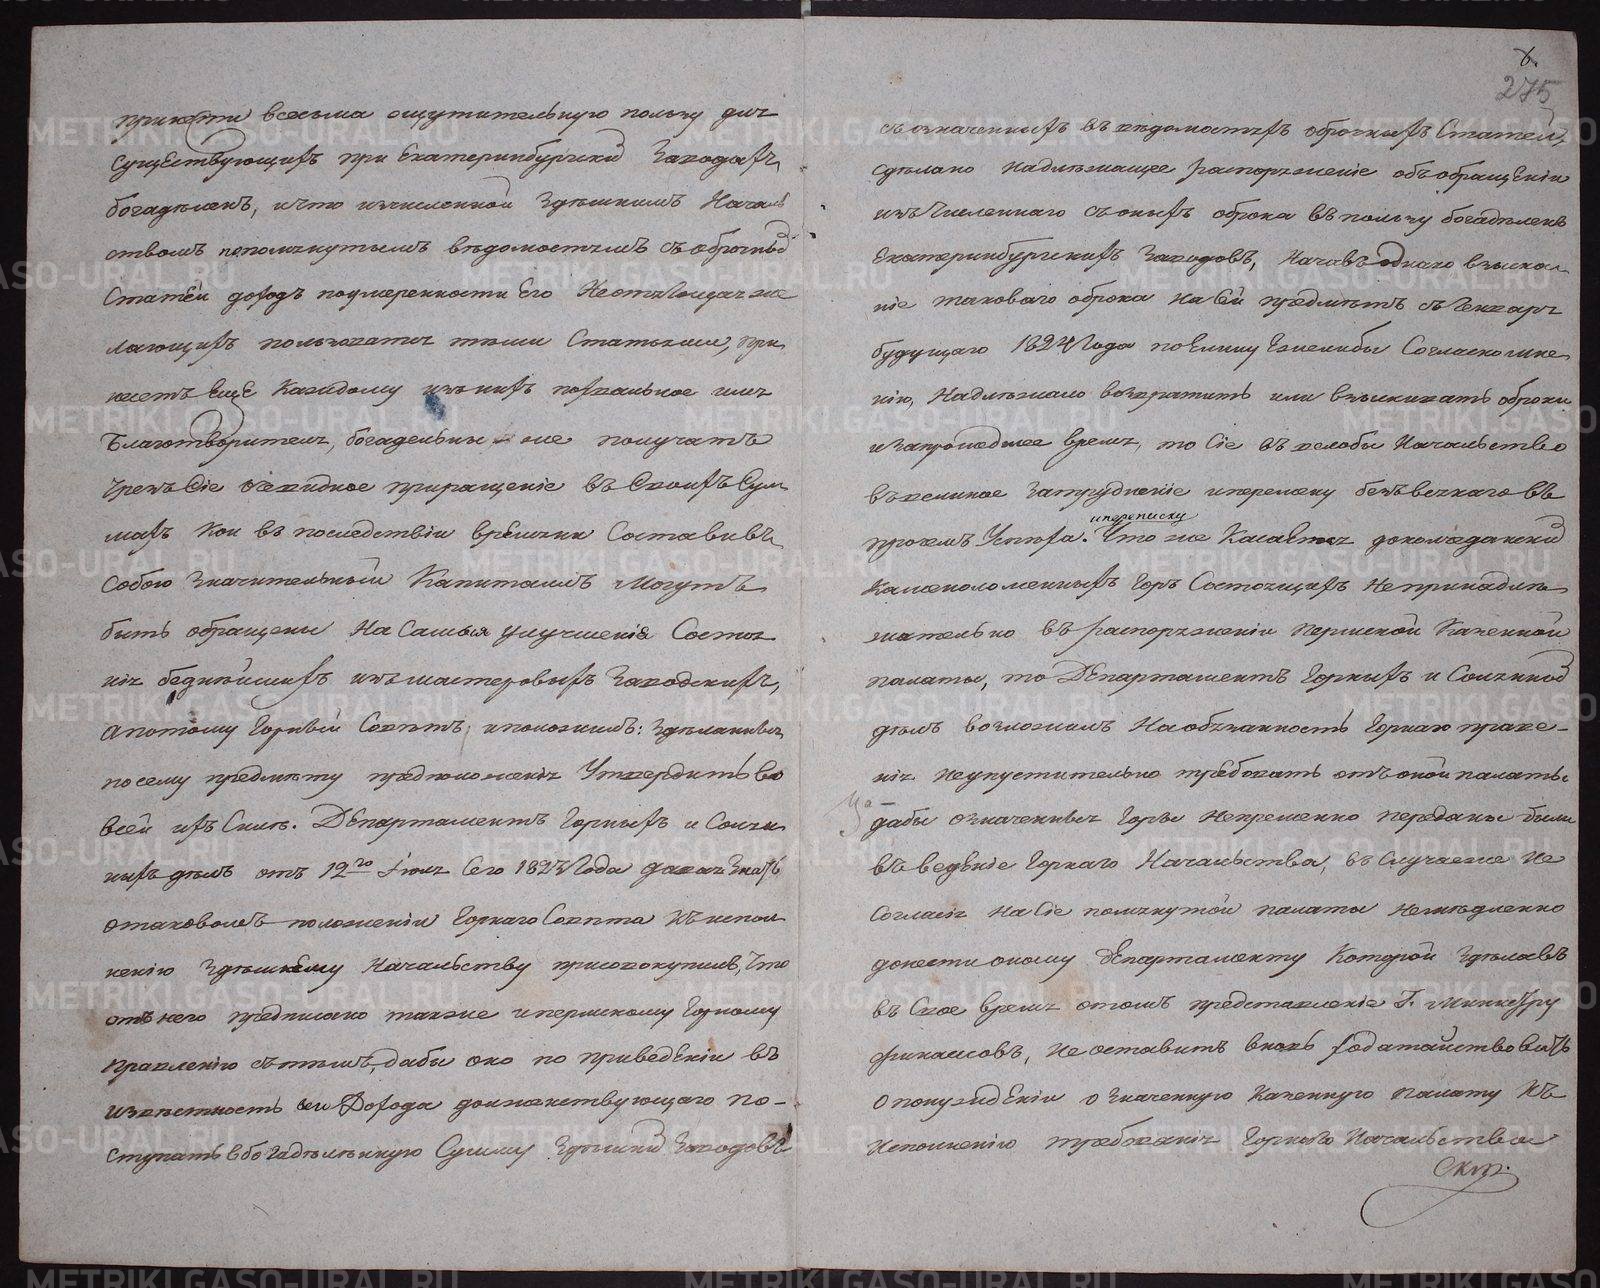 принести весьма ощутительную пользу для
существующихъ при Екатеринбургскихъ Заводахъ
богадѣленъ, и что изчисленной Здѣшнимъ Началь
ствомъ попомянутымъ вѣдомостямъ съ оброчныхъ
Статей доходъ поумеренности Его Неотягощая же
лающихъ пользоватся теми Статьями, при
несетъ Еще Каждому изъ нихъ похвальное имя
Благотворителя, богадельны же получатъ
чрезъ Сіе очевидное приращеніе въ Своихъ Сум
махъ Кои въ последствіи времяни Составивъ
собою Значительный Капиталъ могутъ
быть обращены На Самыя улучшенія Состоя
нія беднѣйшихъ изъ мастеровыхъ Заводскихъ,
а потому Горный Совѣтъ и положилъ: Здѣланныя
по сему предмѣту предположенія Утвердить во
всей ихъ Силѣ. Департаментъ Горныхъ и Соля
ныхъ дѣлъ отъ 12го Іюля Сего 1823 Года давая Знать
отаковомъ положеніи Горнаго Совѣта Къ испол
ненію Здѣшнему Начальству присовокупилъ, Что
отъ него предписано также и пермскому Горному
правленію съ тѣмъ, дабы оно по приведеніи въ
извѣстность сего Дохода долженствующаго по-
ступать в богадѣленную Сумму Здѣшнихъ Заводовъ
6.
275
съ означенныхъ въ вѣдомостяхъ оброчныхъ Статей,
сдѣлано надлѣжащее распоряженіе объ обращеніи
изъ Численнаго съ оныхъ оброка въ пользу богадѣленъ
Екатеринбургскихъ Заводовъ, Начавъ однако взыска
ніе таковаго оброка на Сей предмѣтъ съ Генваря
будущаго 1824 Года поЕлику Ежелибы Согласно мне
нію, Надлѣжало возвратить или взыскивать оброки
и Запрошедшее время, то Сіе въ велобы Начальство
въ великое Затрудненіе и переписку безъ всякаго въ
прочемъ Успѣха. Что же Касается до ломаданскихъ
Каменоломенныхъ Горъ Состоящихъ Непринадлѣ
жательно въ распоряженіи Пермской Казенной
палаты, то Департаментъ Горныхъ и Соляныхъ
дѣлъ возложилъ На обязанность Горнаго правле-
нія неупустительно требовать отъ оной палаты
дабы означенныя Горы Непременно переданы были
въ веденіе Горнаго Начальства, въ Случае же не
согласія на Сіе помянутой палаты немѣдленно
донести оному Департаменту Которой Здѣлавъ
въ Свое время отомъ представленіе Г. Министру
финансовъ, неоставитъ вновь ходатайствовать
о понужденіи означенную Казенную палату Къ
исполненію требованія Горнаго Начальства
Скр.